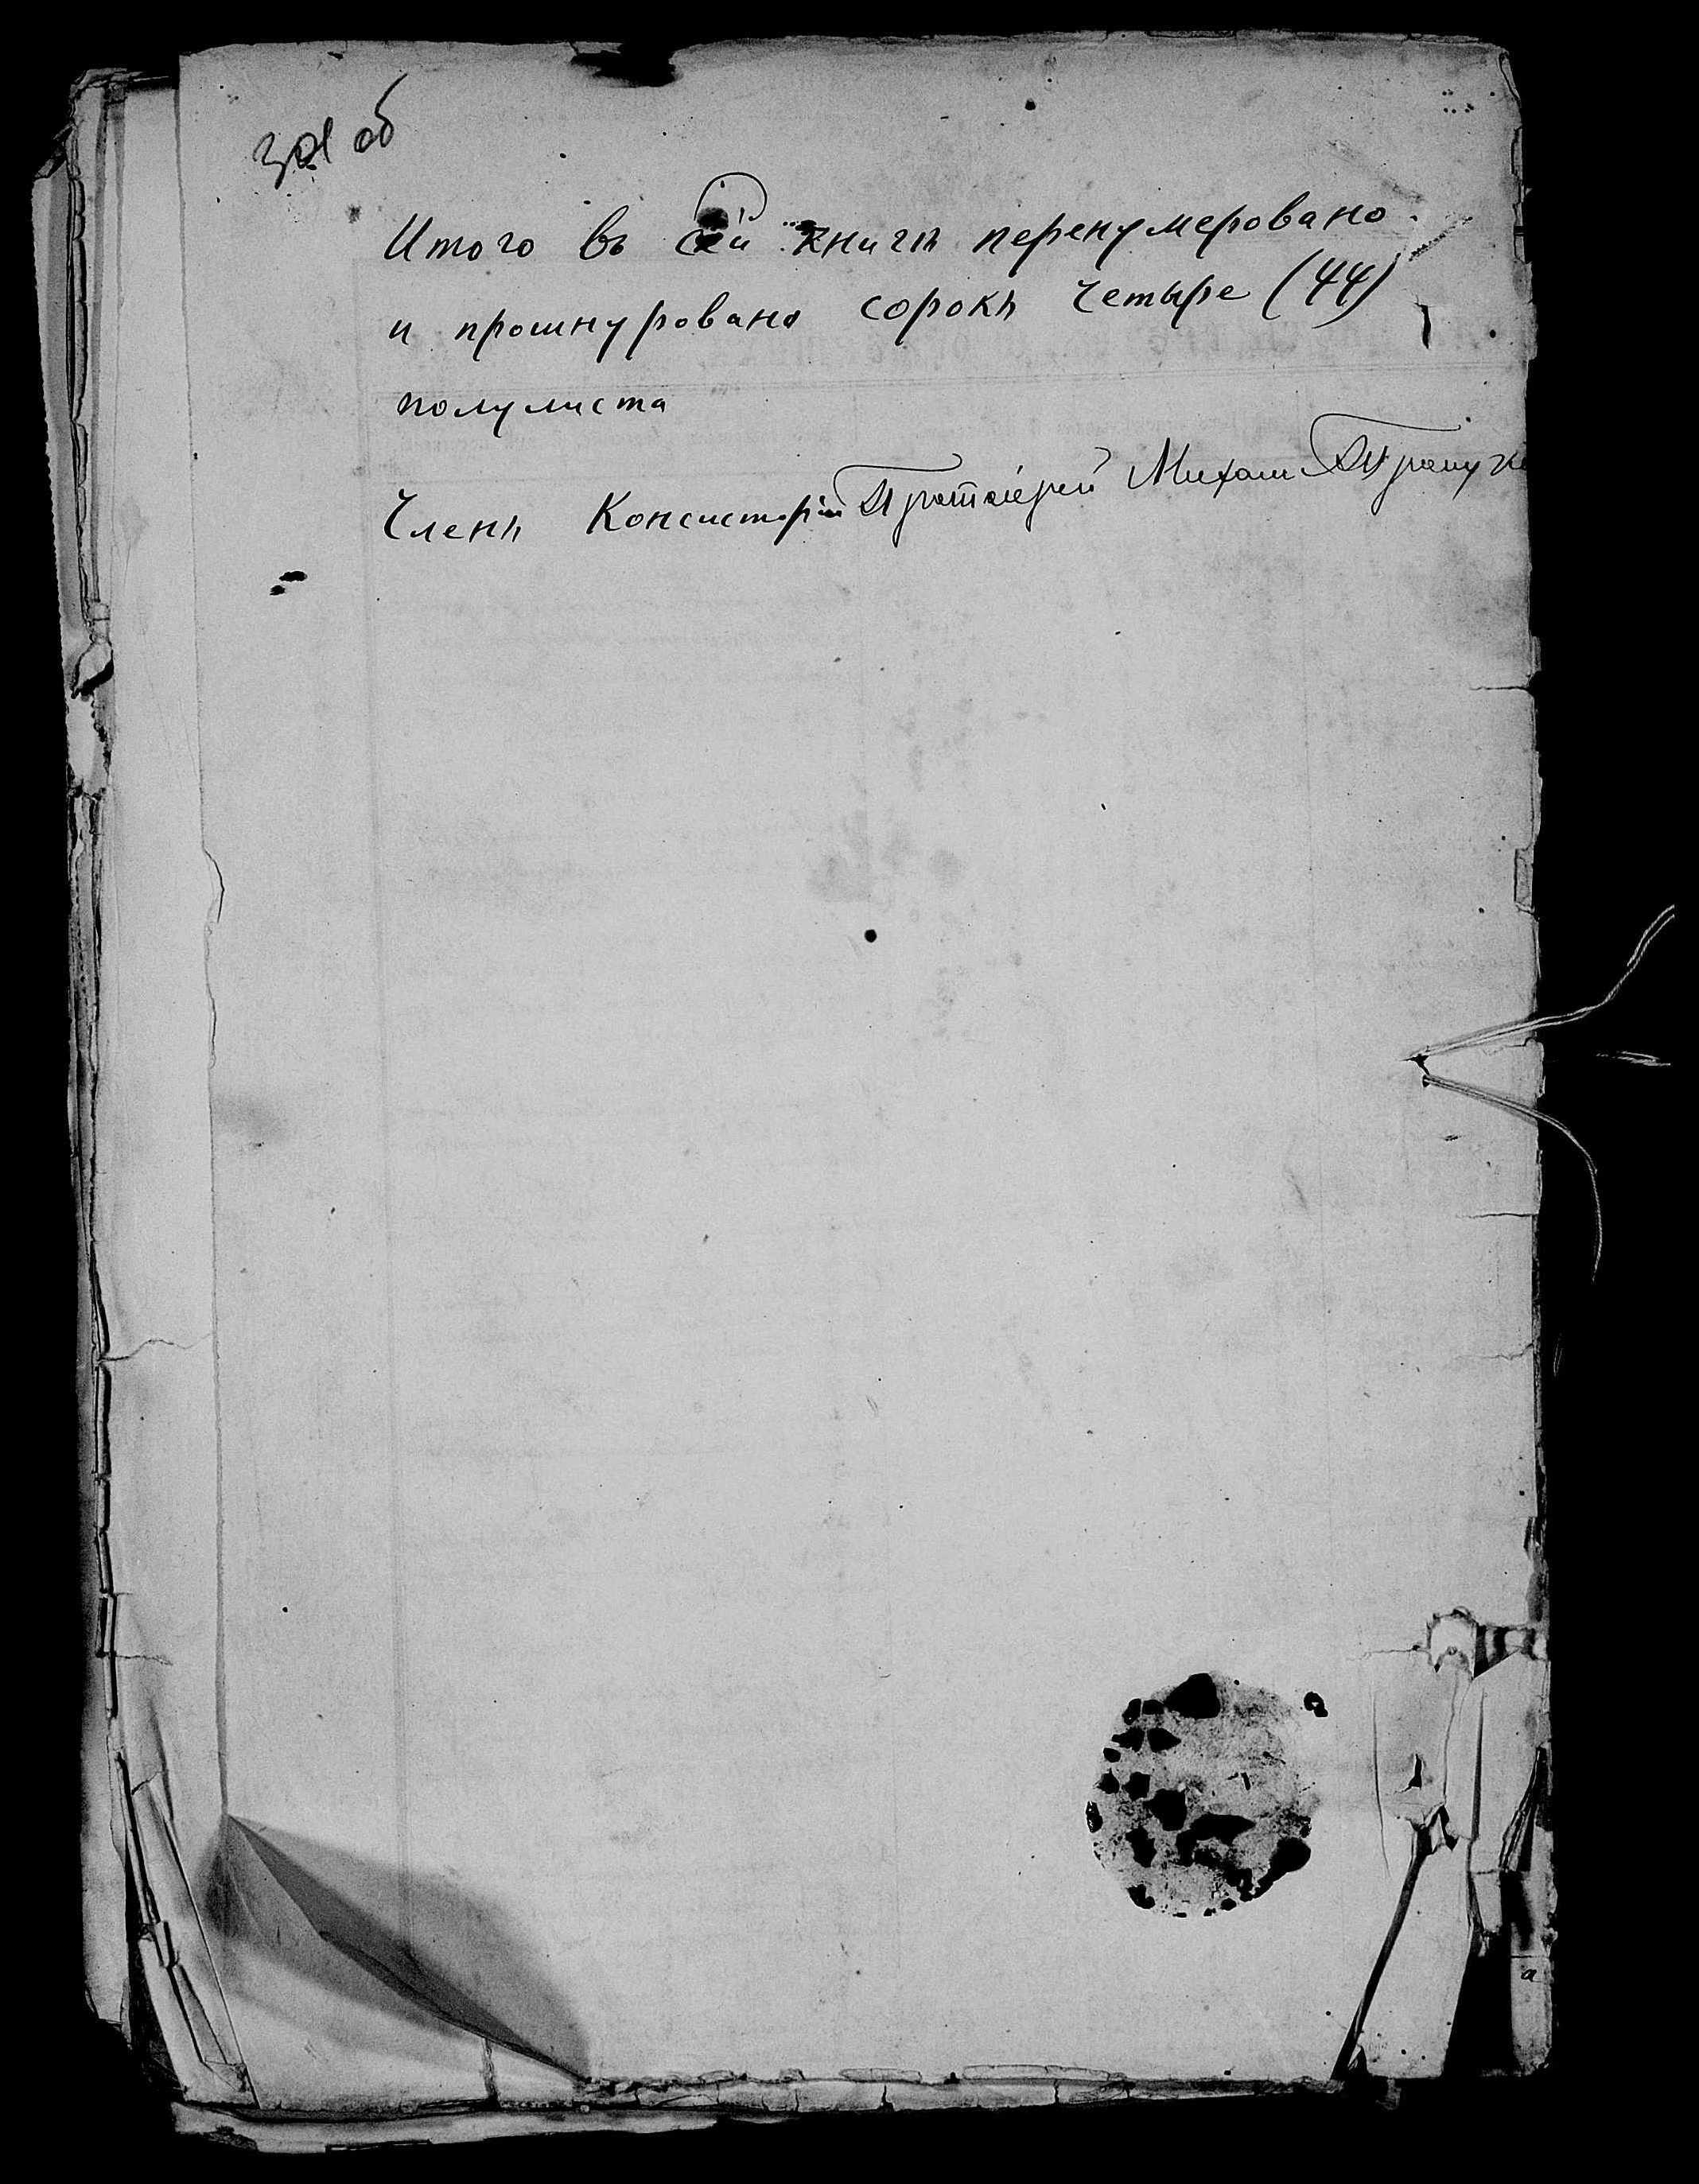 об
Итого въ сей книгѣ перенумеровано
и прошнуровано сорокъ четыре (44)
полулиста
Членъ Консисторіи Протоіерей Михаилъ